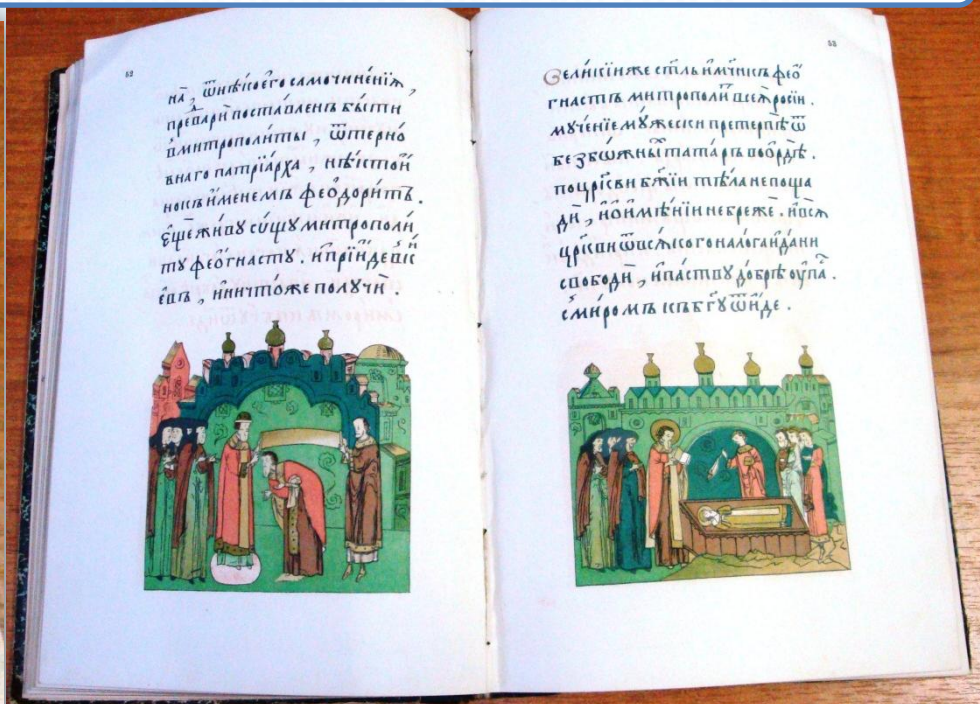 52
на҇, ѿнѣкоего самочиненїѧ,
превари поставленъ быти
вмитрополиты, ѿтерно
внаго патрїарха, нѣктои
нокъ именемъ феодоритъ.
ещеживу сущу митрополи
ту феогнасту. ипрїиде вкї
евъ, иничтоже получи.
53
Великїиже ст҃ль имч҃нкъ фео
гнастъ митрополи всеѧ росїи.
мученїе мужески претерпѣ ѿ
безбѡжны татаръ воордѣ.
поцр҃кви бж҃їи тѣла непоща
ди, ноимѣнїи небреже. ивсѧ
цр҃кви ѿвсѧкого налога идани
свободи, ипаству добрѣ оупа.
смиромъ къбг҃у ѿиде.